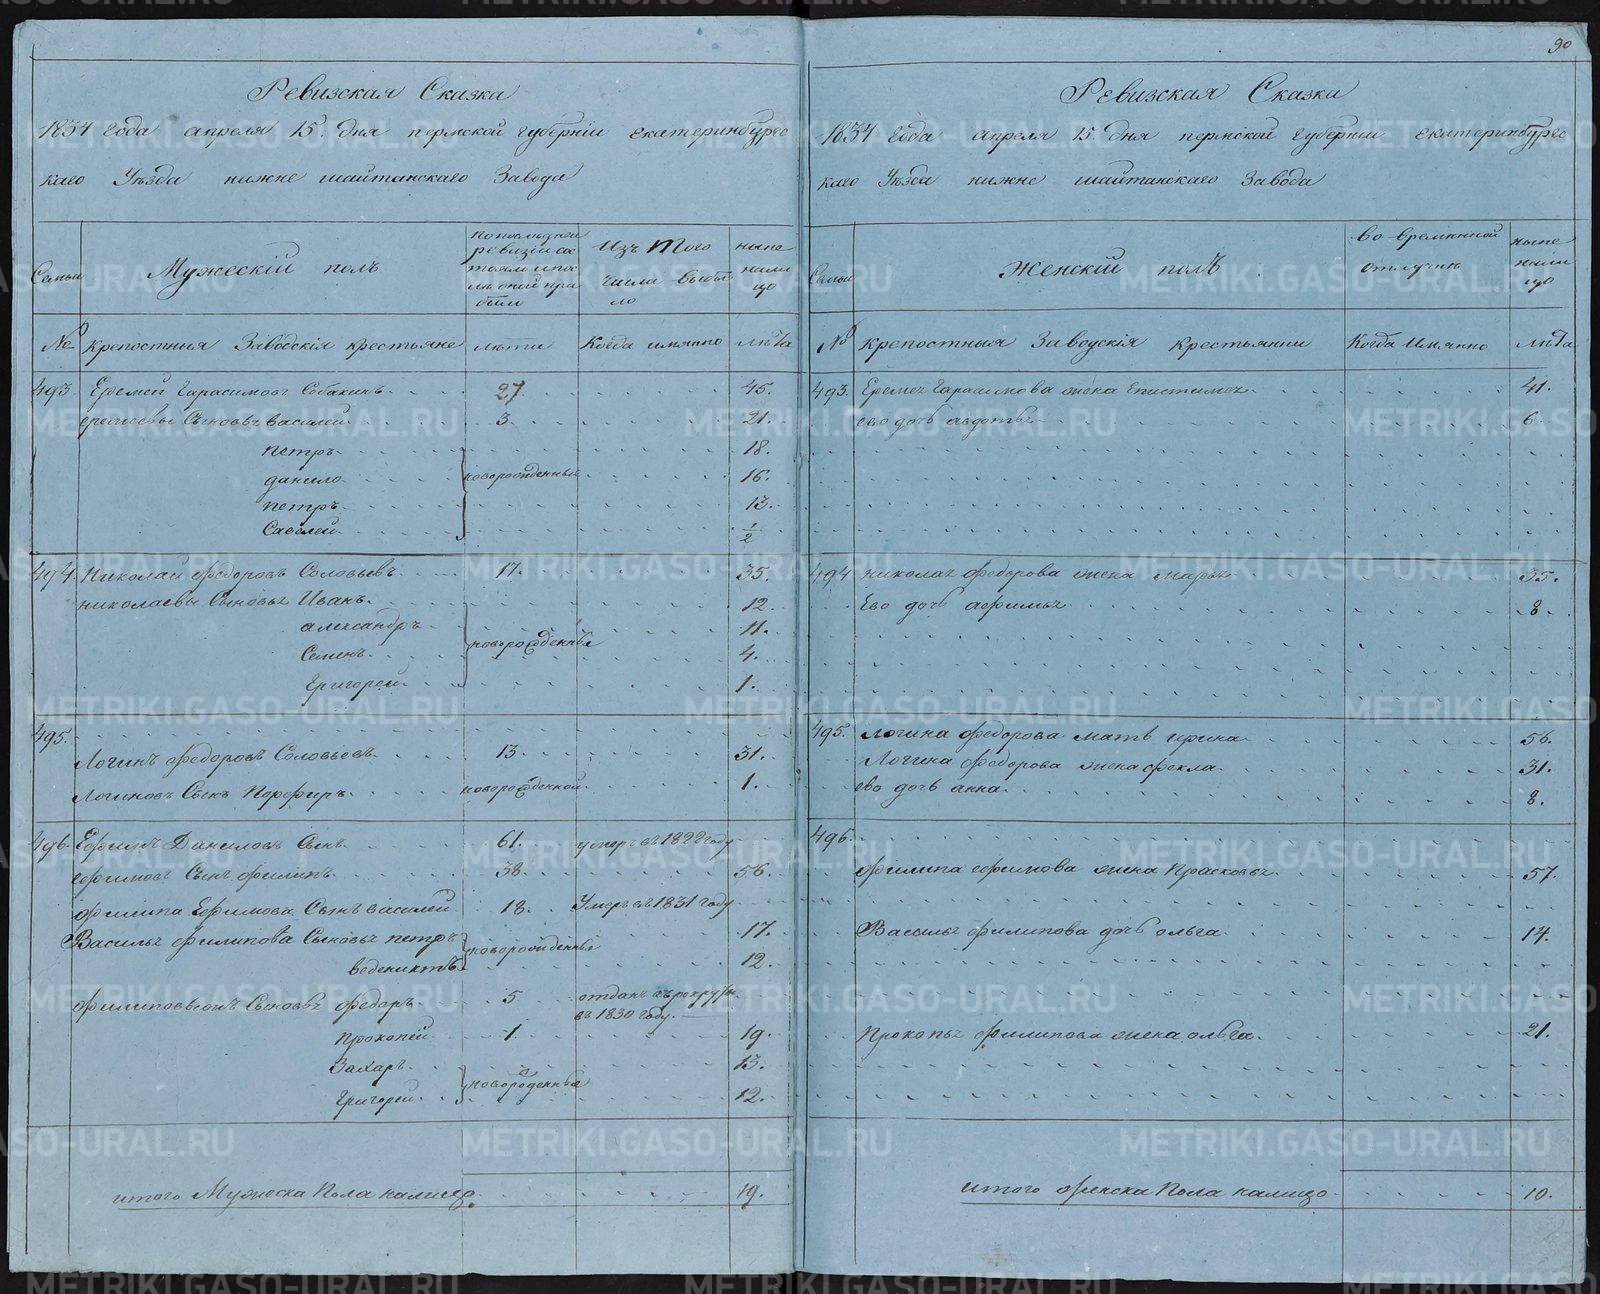 90
Ревизская Сказка
1834 года апреля 15. дня пермской губернии екатеринбургс
каго Уезда нижне шайтанскаго Завода
Семьи
Мужеский полъ
по последней ревизии состояло и после оной прибыло
Изъ того числа выбыло
ныне налицо
№
крепостныя Заводския крестьяне
лѣта
Когда имянно
лѣта
493. Еремей Гарасимовъ Собакинъ 27 45.
еремеевы Сыновья василей 3. 21.
петръ 18.
данило новорожденныя 16.
петръ 13.
Савелей 1/2
494. Николаи Федоровъ Соловьевъ 17. 35.
николаевы Сыновья Иванъ 12.
александръ 11.
Семенъ новорожденныя 4.
Григорей 1.
495.
Логинъ Федоровъ Соловьевъ 13. 31.
Логиновъ Сынъ Порфиръ новорожденной 1.
496. Ефимъ Даниловъ Сынъ 61. умеръ въ 1822 году
ефимовъ Сынъ филипъ 38. 56.
филипа Ефимова Сынъ василей 18. Умеръ въ 1831 году
Василья филипова Сыновья петръ новорожденныя 17.
веденихтъ 12.
филиповы Сыновья федаръ 5 отданъ въ рекруты
въ 1830 году.
Прокопей 1. 19.
Захаръ 13.
Григорей новорожденныя 12.
итого Мужеска Пола налицо 19.
Ревизская Сказка
1834 года апреля 15 дня пермской губернии екатеринбургс
каго Уезда нижне шайтанскаго Завода
Семьи
Женский полъ
во временной отлучке
ныне налицо
№
крепостныя Заводския крестьянки
Когда Имянно
лѣта
493. Еремея Гарасимова жена Епистимея 41.
ево дочь авдотья 6.
494 николая федорова жена марья 35.
Ево дочь афимья 8.
495. Логина федорова мать ирина 56.
Логина федорова жена фекла 31.
ево дочь анна 8.
496.
филипа ефимова жена Прасковья 57.
Василья филипова дочь ольга 14.
Прокопья филипова жена ольга 21.
итого женска Пола налицо 10.
METRIKI.GASO-URAL.RU